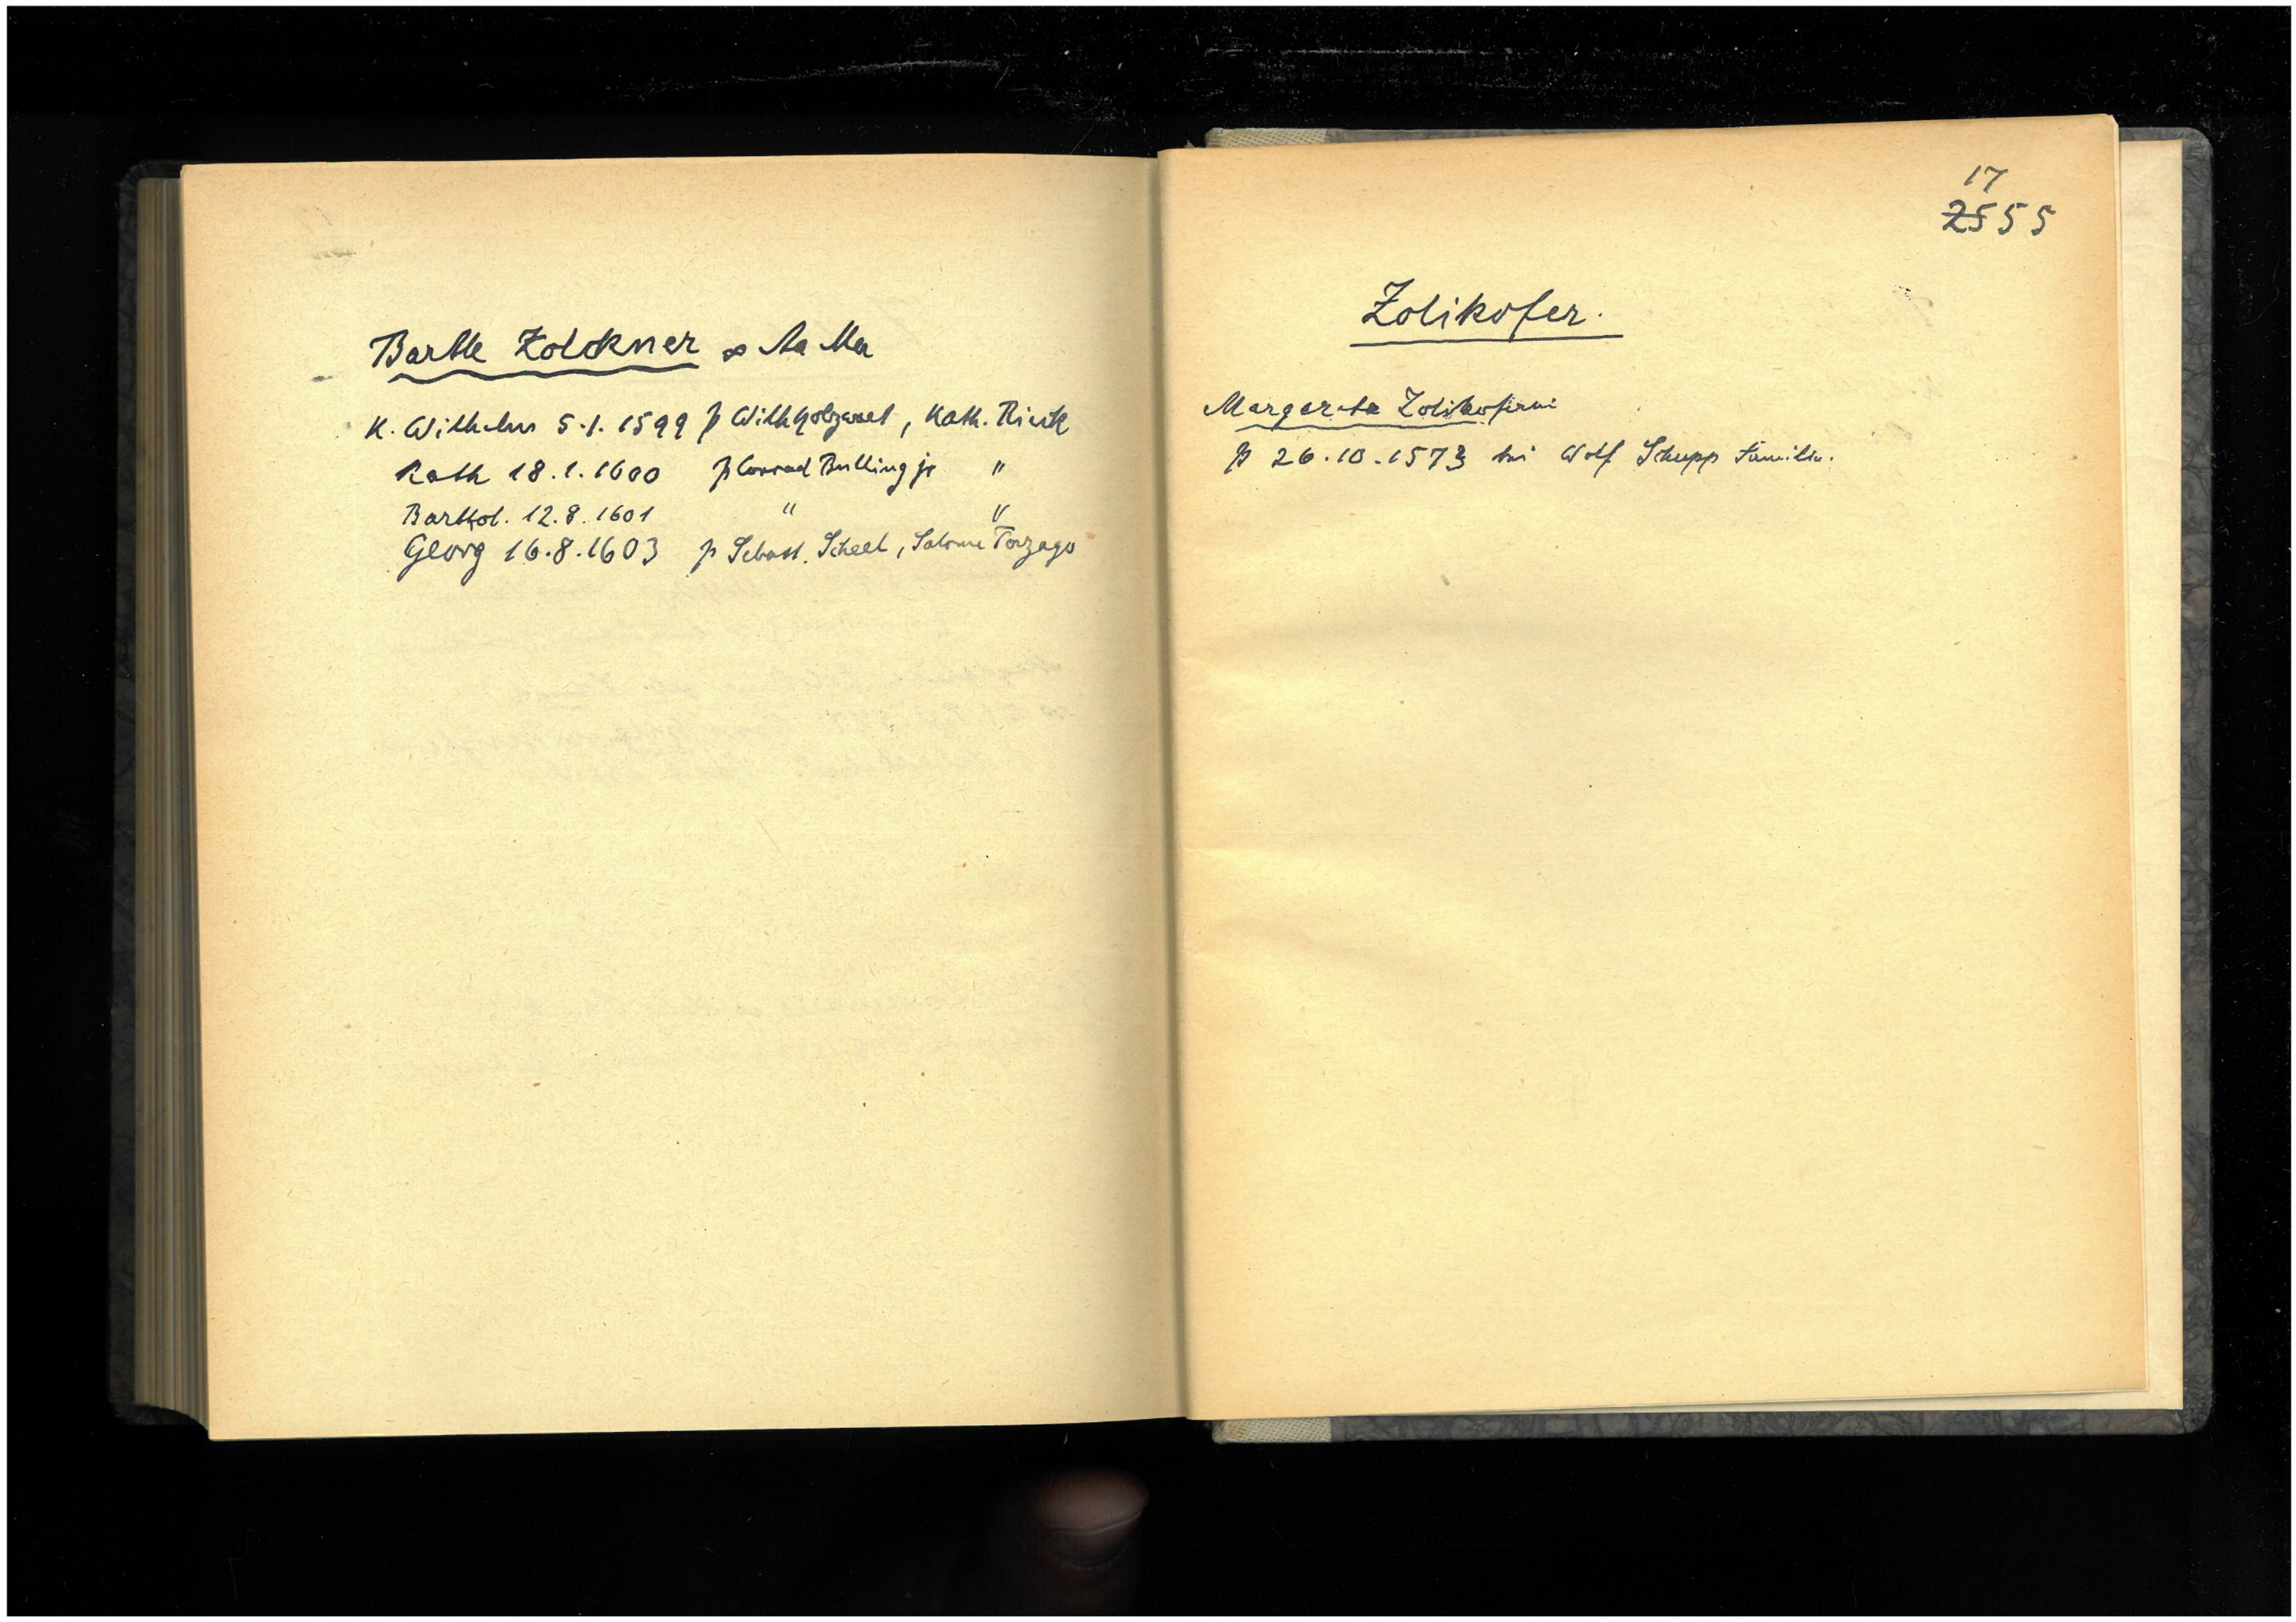 Bartle Zolckner ∞ Aa Ma
K. Wilhelm 5.1.1599 p Wilh Holzapfel, Kath. Rieck
Kath 18.1.1600 p Conrad Bulling jr "
Barthol. 12.8.1601 " "
Georg 16.8.1603 p Sebast. Scheel, Salome Torzago
17
2555
Zolikofer.
Margareta Zolikoferin
p 26.10.1573 bei Wolf Schupp Familie.